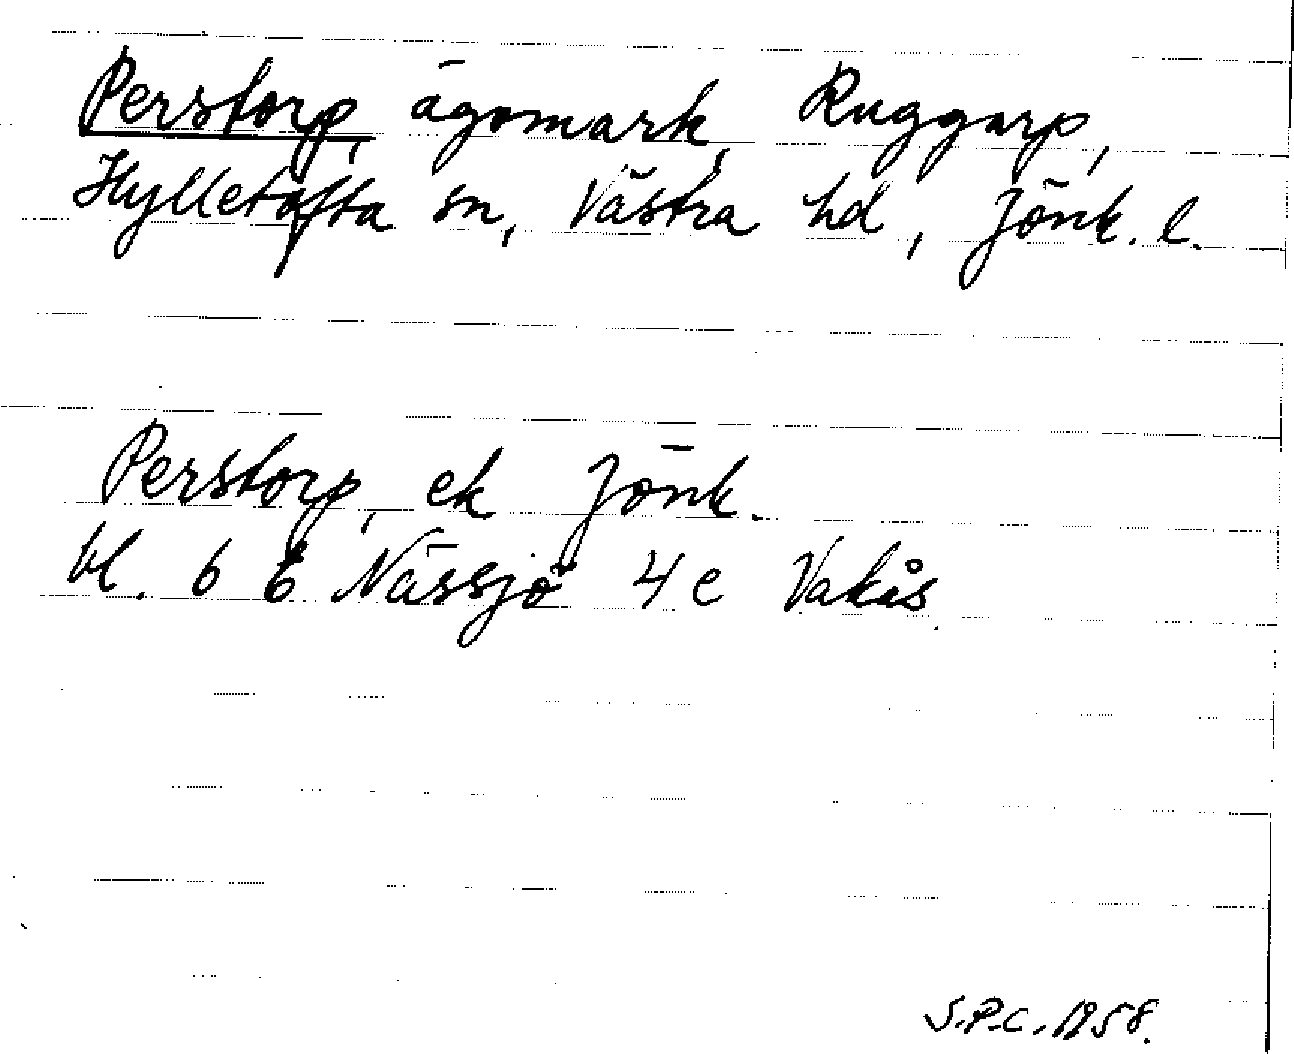 Perstorp, ägomark, Ruggarp,
Hylletofta sn, Västra hd, Jönk. l.
Perstorp, ek Jönk.
bl. 6 E Nässjö 4 e Vakås
S.P.C. 1958.